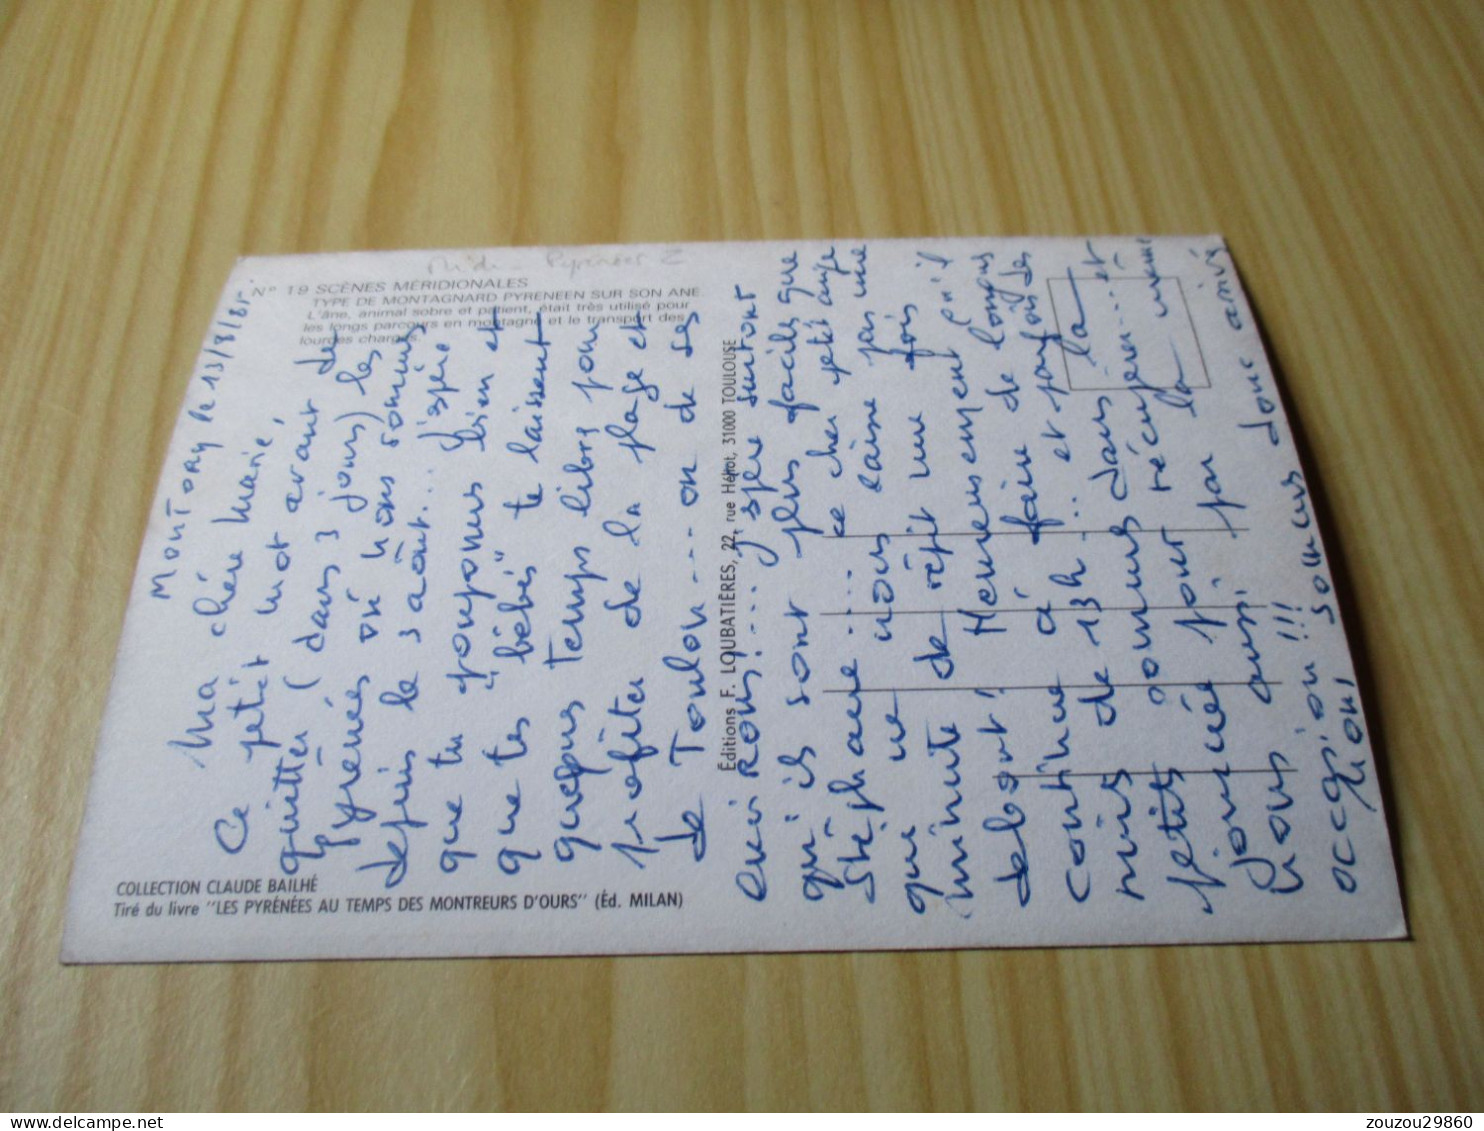 Midi-Pyrénées 2
N° 19 SCÈNES MÉRIDIONALES
TYPE DE MONTAGNARD PYRENEEN SUR SON ANE
L'âne, animal sobre et patient, était très utilisé pour
les longs parcours en montagne et le transport des
lourdes charges.
COLLECTION CLAUDE BAILHÉ
Tiré du livre "LES PYRÉNÉES AU TEMPS DES MONTREURS D'OURS" (Éd. MILAN)
Éditions F. LOUBATIÈRES, 22, rue Hélliot, 31000 TOULOUSE
MONTORY le 13/8/85
Ma chère Marie,
Ce petit mot avant de
quitter (dans 3 jours) les
Pyrénées où nous sommes
depuis le 3 août... j'espère
que tu pouponnes bien et
que tes "bébés" te laissent
quelques temps libre pour
profiter de la plage et
de Toulon... on de ses
environs!... j'espère surtout
qu'ils sont plus faciles que
Stéphane... ce cher petit ange
qui ne nous laisse pas une
minute de répit une fois
debout! Heureusement qu'il
continue à faire de longues
nuits de 13h.. et parfois des
petits sommes dans la
journée pour récupérer... et
nous aussi par la même
occasion!!! Nous sommes donc